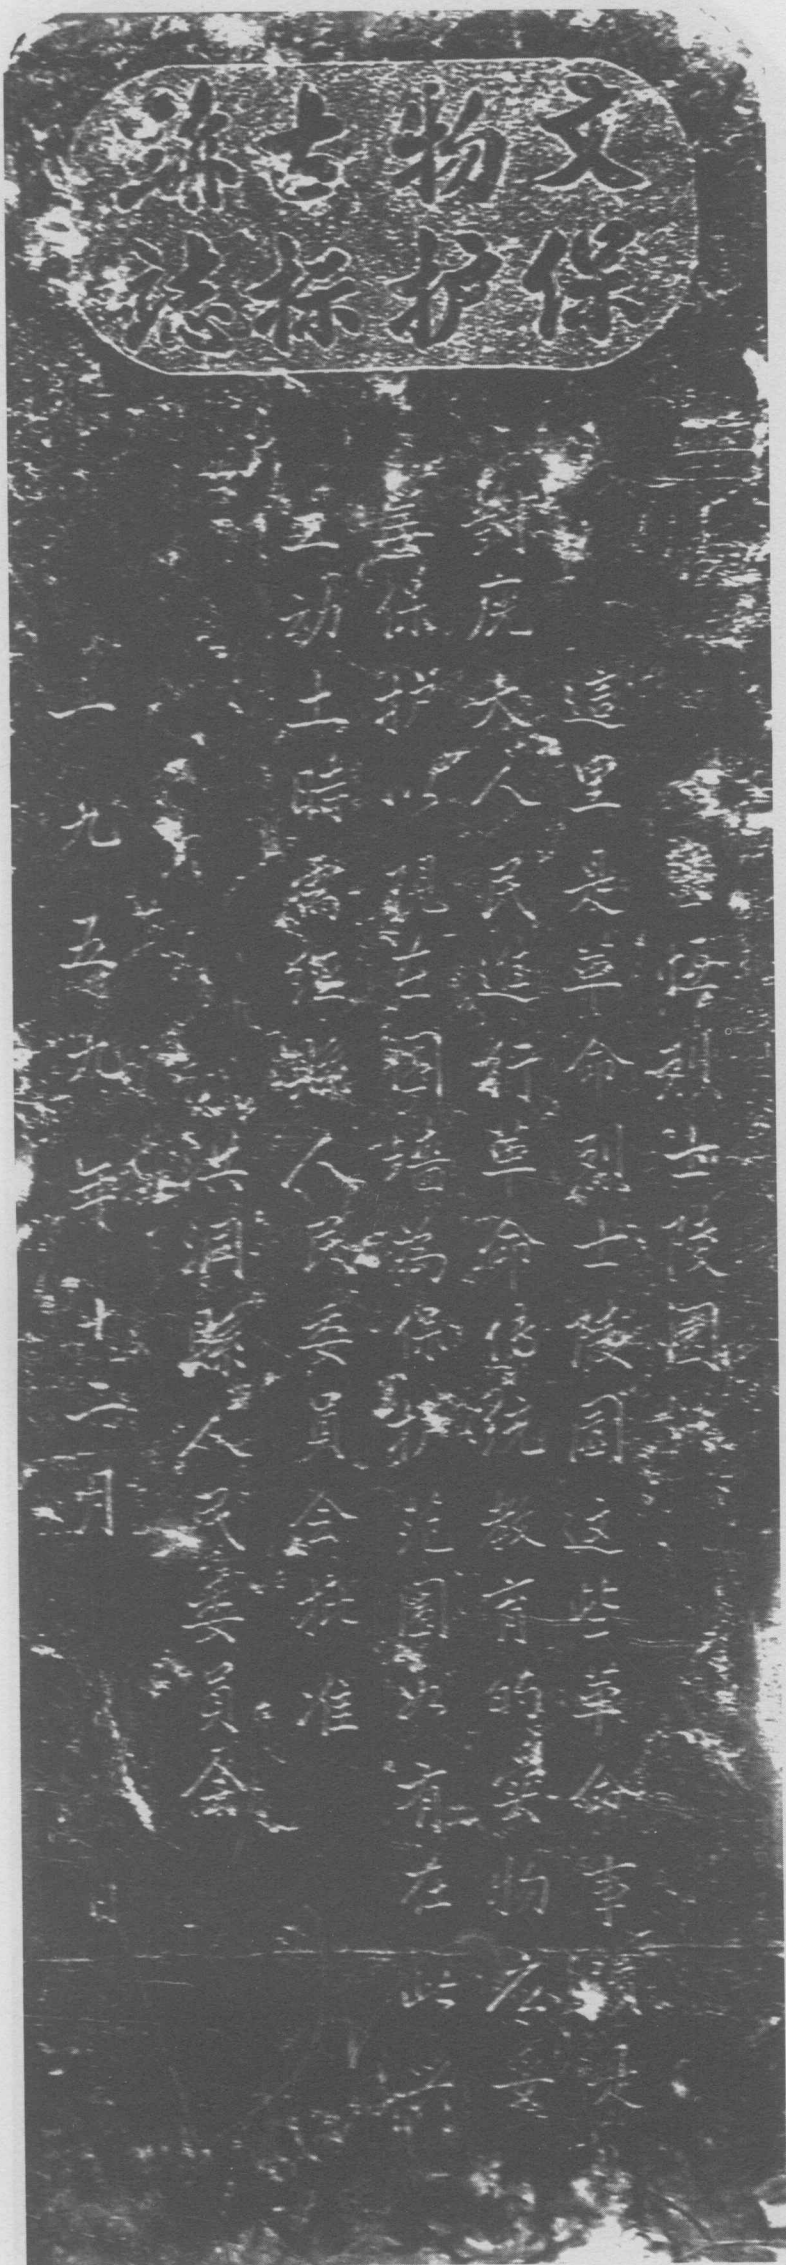 文物古蹟
保护标誌
烈士陵園
這里是革命烈士陵园这些革命事
對大人民進行革命传统教育的实物应
妥保护以現在囲墙為保护范围如有在此
工动土時需经縣人民委員会批准
洪洞縣人民委員会
一九五九年十二月 日